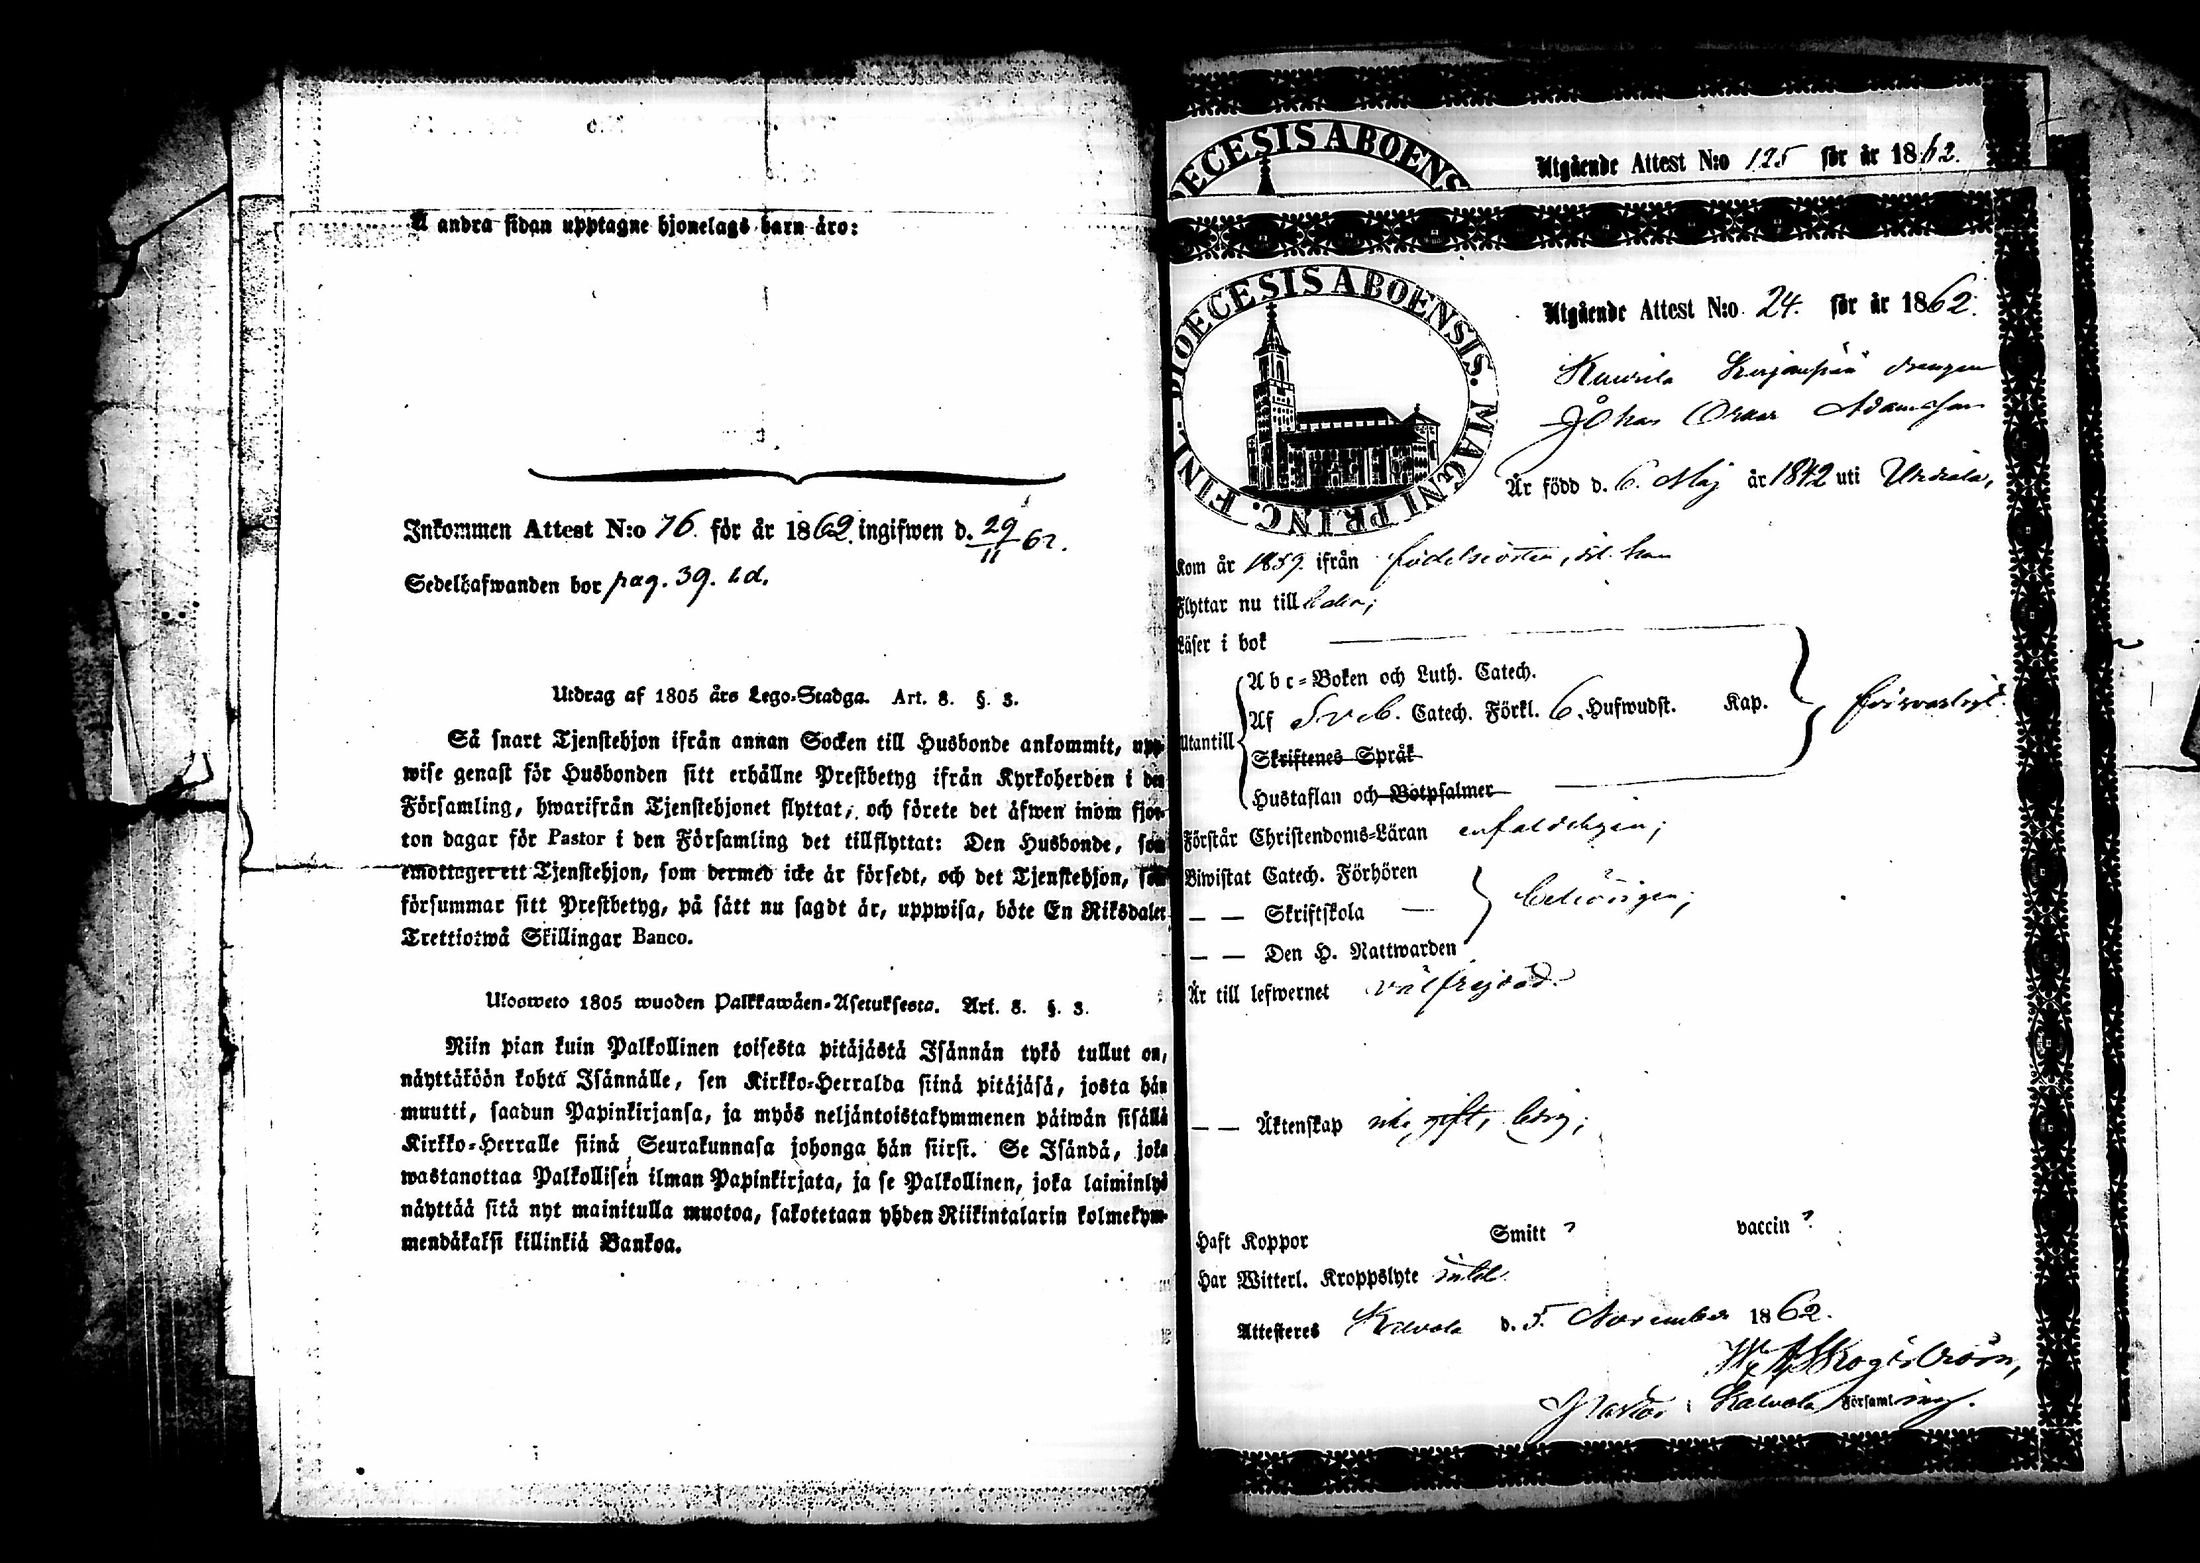 Å andra sidan upptagne hjonelags barn äro:
Inkommen Attest N:o 76. för år 1862. ingifwen d. 29/11 62.
Sedelhafwanden bor pag. 39. i.d.
Utdrag af 1805 års Lego-Stadga. Art. 8. §. 3.
Så snart Tjenstehjon ifrån annan Socken till Husbonde ankommit, upp-
wise genast för Husbonden sitt erhållne Prestbetyg ifrån Kyrkoherden i den
Församling, hwarifrån Tjenstehjonet flyttat, och förete det äfwen inom fjor-
ton dagar för Pastor i den Församling det tillflyttat: Den Husbonde, som
emottager ett Tjenstehjon, som dermed icke är försedt, och det Tjenstehjon, som
försummar sitt Prestbetyg, på sätt nu sagdt är, uppwisa, böte En Riksdaler
Trettiotwå Skillingar Banco.
Ulosweto 1805 wuoden Palkkawäen-Asetuksesta. Art. 8. §. 3.
Niin pian kuin Palkollinen toisesta pitäjästä Isännän tykö tullut on,
näyttäköön kohta Isännälle, sen Kirkko-Herralda siinä pitäjäsä, josta hän
muutti, saadun Papinkirjansa, ja myös neljäntoistakymmenen päiwän sisällä
Kirkko-Herralle siinä Seurakunnasa johonga hän siirsi. Se Isändä, joka
wastanottaa Palkollisen ilman Papinkirjata, ja se Palkollinen, joka laiminlyö
näyttää sitä nyt mainitulla muotoa, sakotetaan yhden Riikintalarin kolmekym-
mendäkaksi killinkiä Bankoa.
OECESIS ABOENS
Utgående Attest N:o 125 för år 1862.
DIOECESIS ABOENSIS. MAGNI PRINC. FINL.
Utgående Attest N:o 24. för år 1862.
Kuurila Kirjanpää drängen
Johan Oskar Adamsson
Är född d. 6. Maj år 1842 uti Urdiala,
Kom år 1859. ifrån födelseorten, dit han
Flyttar nu till
Läser i bok
Utantill
Abc-Boken och Luth. Catech.
Af Sveb. Catech. Förkl. 6. Hufwudst. Kap.
försvarligt.
Skriftenes Språk
Hustaflan och Botpsalmer
Förstår Christendoms-Läran enfaldeligen;
Biwistat Catech. Förhören
— — Skriftskola — behörigen;
— — Den H. Nattwarden
Är till lefwernet välfrejdad.
— — Äktenskap icke gift, ledig;
Haft Koppor Smitt ? vaccin ?
Har Witterl. Kroppslyte intet.
Attesteres Kalvola d. 5. November 1862.
Skogström,
Pastor i Kalvola Församling.